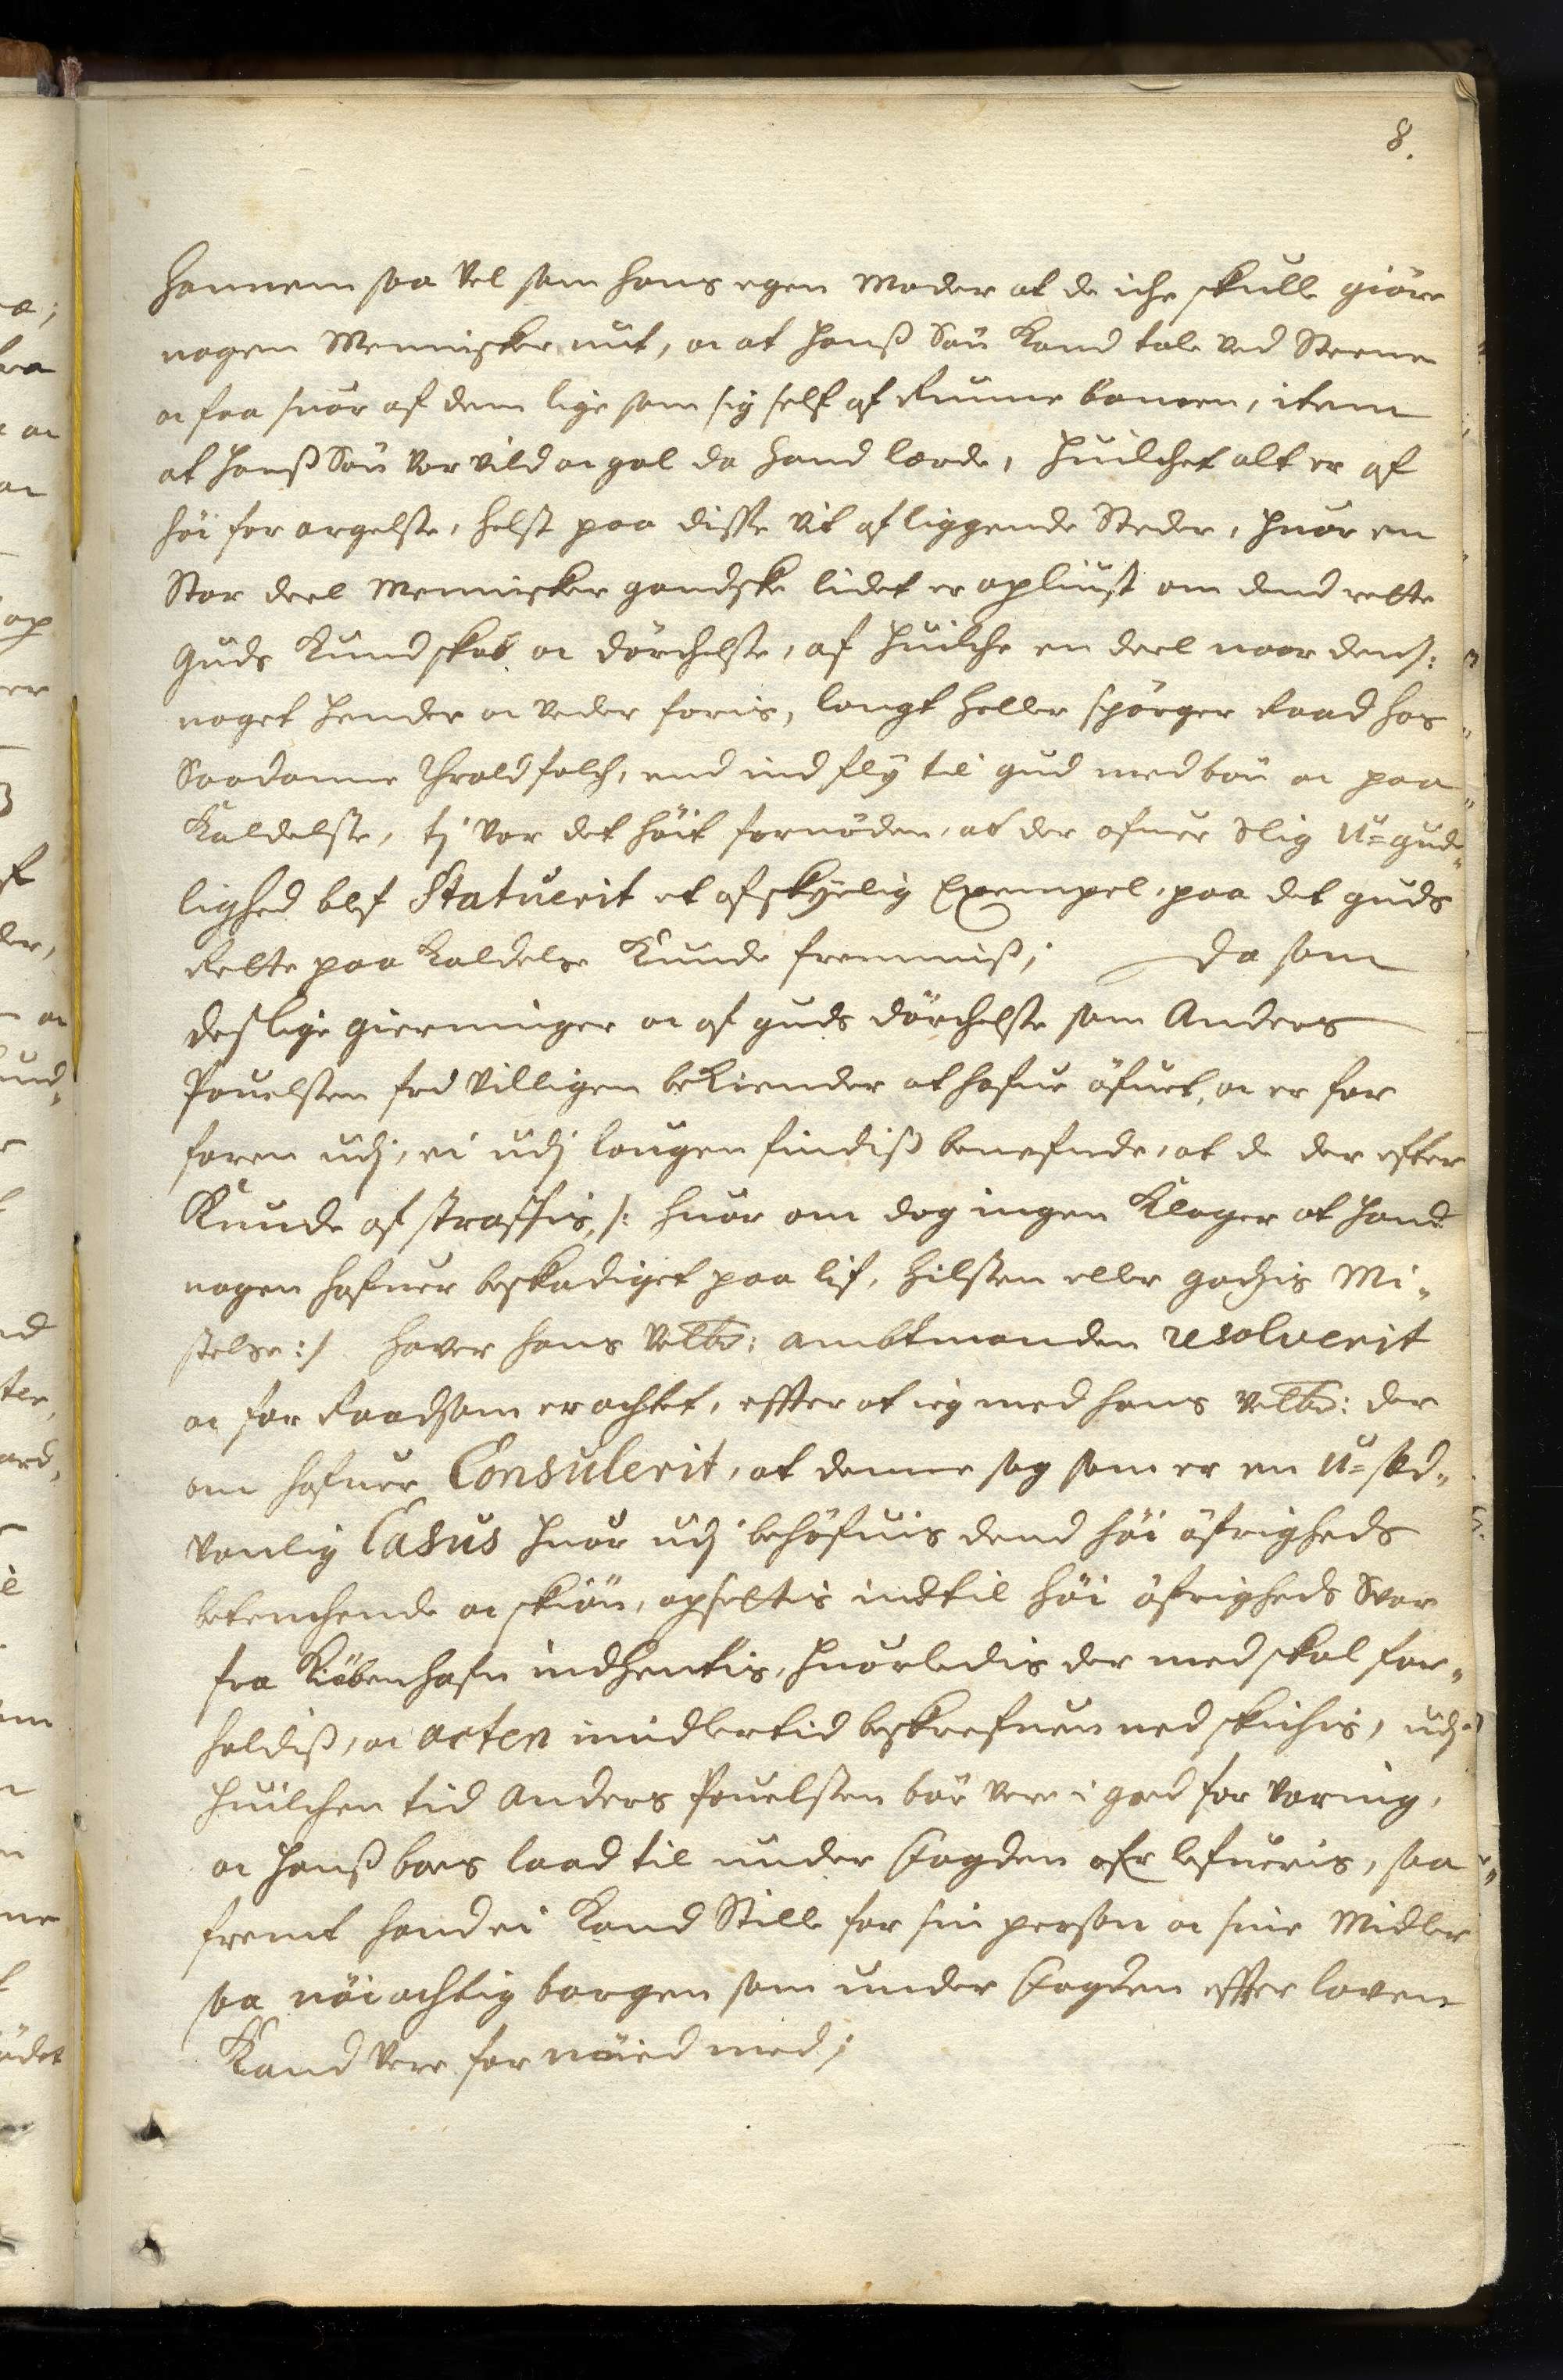 8.
hannem saa vel som hans egen Moder at de iche skulle giöre
nogen Mennisker unt, oc at hanß Sön kand tale ved Steene
oc faa suar af dem lige som sig self af Rune bomen, item
at hanß Sön var vild oc gal da hand lærde, huilchet alt er af
höi forargelsse, helst paa disse vit afliggende Steder, huor en
Stor deel Mennisker gandske lidet er opliust om dend rette
Guds kundskab oc dörchelsse, af huilche en deel naar dem :
noget hender oc veder faris, langt heller spörger Raad hos
Saadanne Throldfolch, end indfly til gud med bön oc paa
Kaldelsse, tj var det höit fornöden, at der ofuer slig U=gude„
lighed blef Statuerit et afskyelig Exempel, paa det guds
Rette paa kaldelse kunde fremmiß; Da som
deslige gierninger oc afguds dörchelsse som Anders
Pouelssen fri villigen bekiender at hafue öfuet, oc er for
faren udj, ei udj lougen findiß benefnde, at de der efter
kunde afstraffis, /: huor om dog ingen klager at hand
nogen hafuer beskadiget paa lif, hilssen eller godzis Mi„
stelse :/ haver hans Velbr: ambtmanden resolverit
oc for Raadsom erachtet, effter at ieg med hans Velbr: der
om hafuer Consulerit, at denne sag som er en U=sed„
vanlig Casus huor udj behöfuis dend höi öfrigheds
betenchende oc skiön, opsettis indtil höi öfrigheds Svar
fra Kiöbenhafn indhentis, huorledis der med skal for„
holdiß, oc acten imidlertid beskrefuen ned skichis, udj
huilchen tid Anders Pouelssen bör vere i god for varing,
oc hanß boes laad til under fogden ofr lefueris, saa
fremt hand ei kand Stille for sin person oc sine Midler
saa nöiachtig borgen som under fogden effter loven
Kand vere fornöied med;